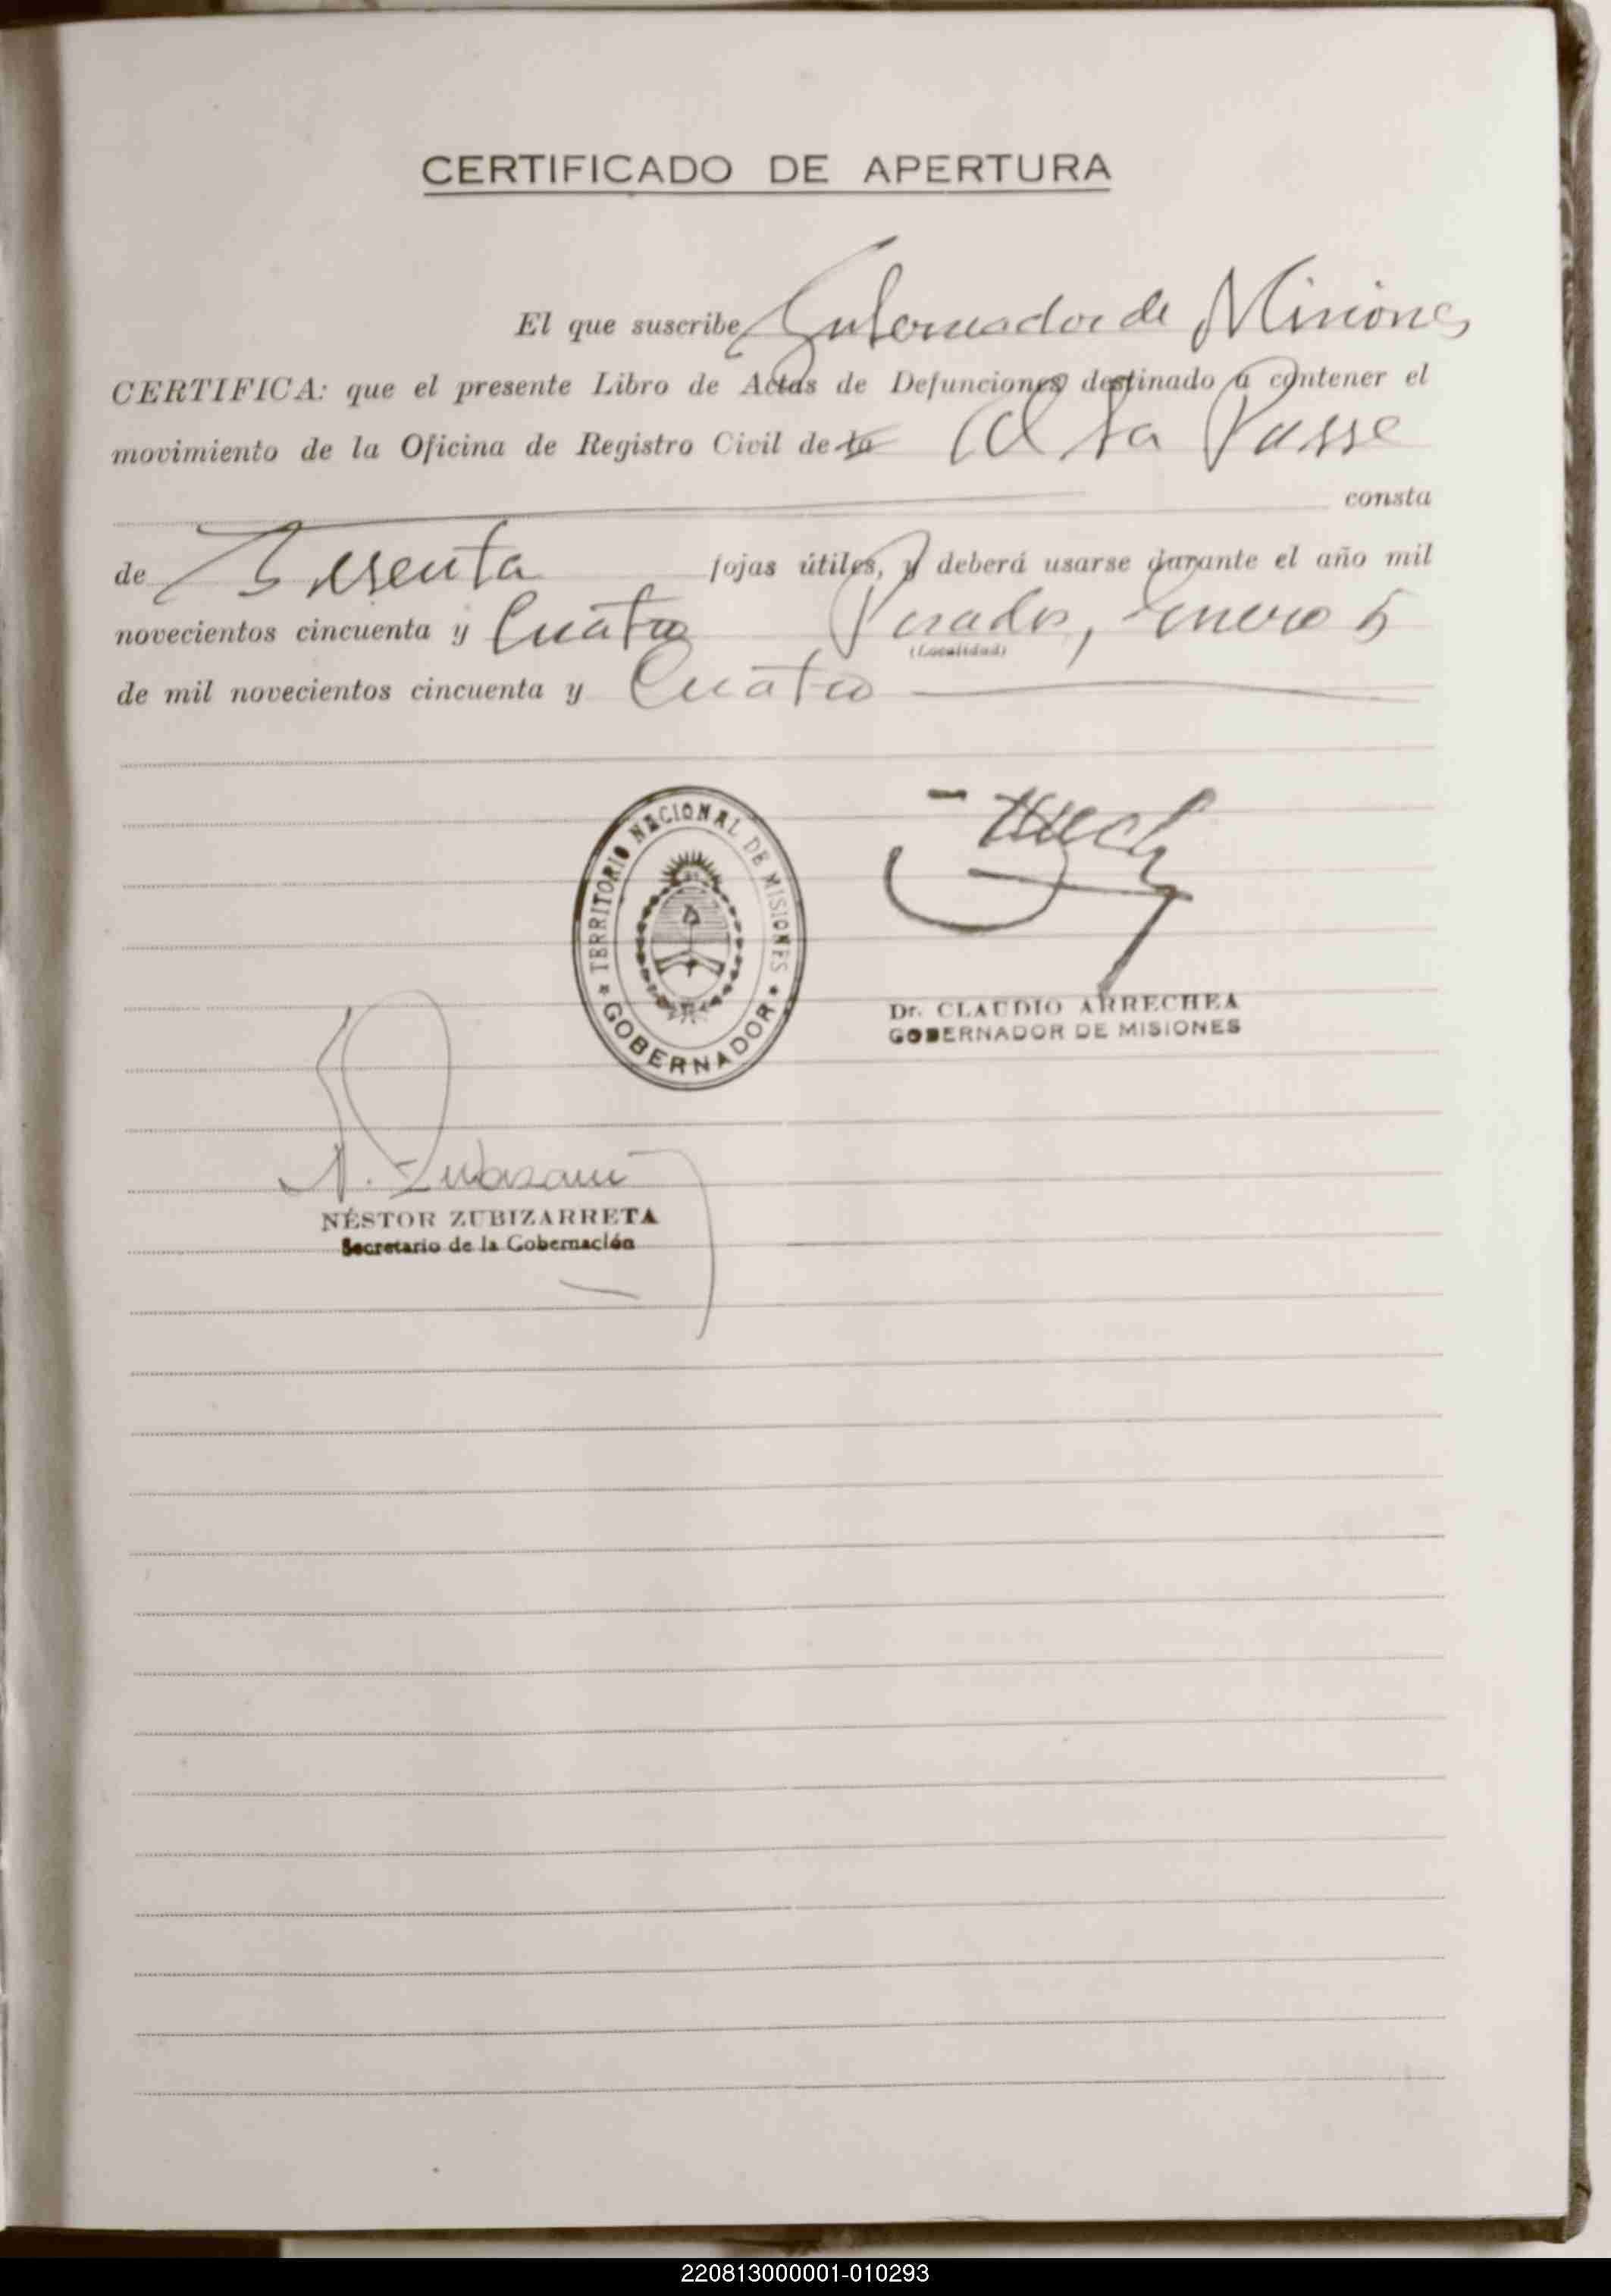 CERTIFICADO DE APERTURA
El que suscribe Gobernador de Misiones
CERTIFICA: que el presente Libro de Actas de Defunciones destinado a contener el
movimiento de la Oficina de Registro Civil de la
consta
de fojas útiles, y deberá usarse durante el año mil
novecientos cincuenta y Cuatro Posadas, Enero 5
(Localidad)
de mil novecientos cincuenta y Cuatro
TERRITORIO NACIONAL DE MISIONES
GOBERNADOR
Dr. CLAUDIO ARRECHEA
GOBERNADOR DE MISIONES
NÉSTOR ZUBIZARRETA
Secretario de la Gobernación
220813000001-010293